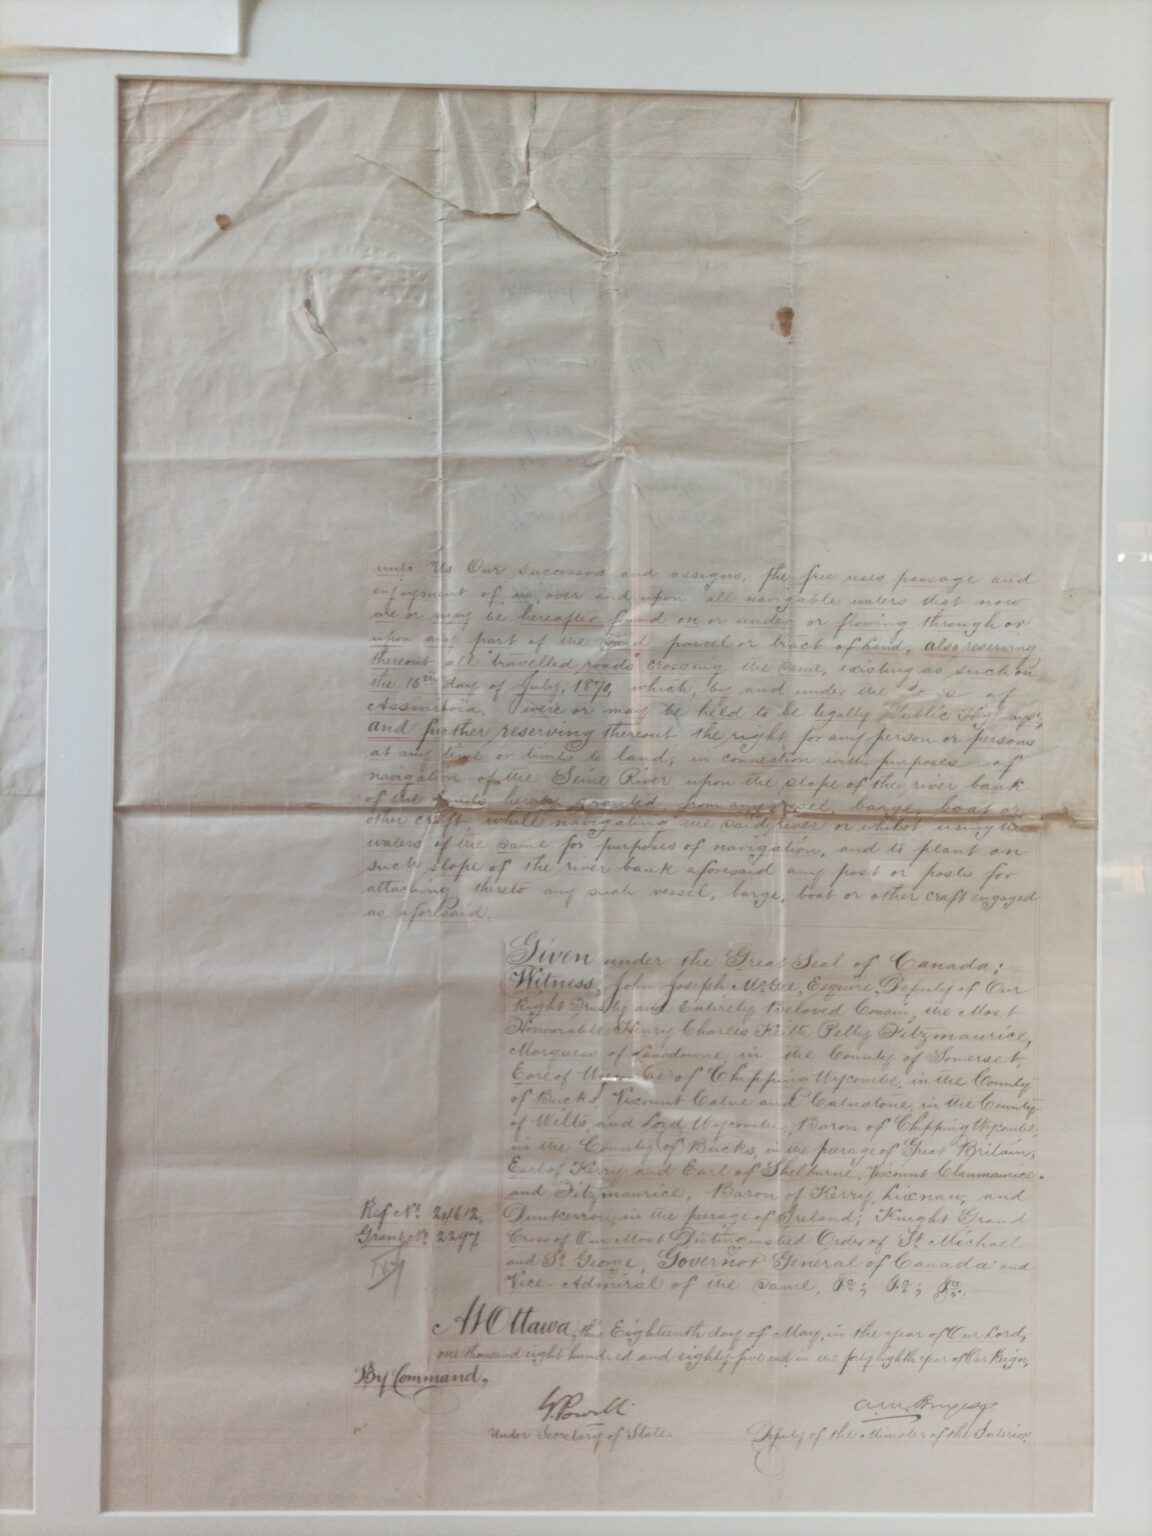 unto Us Our successors and assigns, the free uses passage and
enjoyment of, in, over and upon all navigable waters that now
are or may be hereafter found on or under or flowing through or
upon any part of the said parcel or tract of Land; also reserving
thereout all travelled roads crossing the same, existing as such on
the 15th day of July, 1870, which, by and under the Laws of
Assiniboia, were or may be held to be legally Public Highways;
and further reserving thereout the right for any person or persons
at any time or times to land, in connection with purposes of
navigation of the Seine River upon the slope of the river bank
of the lands herein granted, from any vessel, barge, boat or
other craft while navigating the said river or whilst using the
waters of the same for purposes of navigation, and to plant on
such slope of the river bank aforesaid any post or posts for
attaching thereto any such vessel, barge, boat or other craft engaged
as aforesaid.
Given under the Great Seal of Canada;
Witness, John Joseph McGee, Esquire, Deputy of Our
Right Trusty and Entirely Beloved Cousin, the Most
Honourable Henry Charles Keith Petty Fitzmaurice,
Marquess of Lansdowne, in the County of Somerset,
Earl of Wycombe of Chipping Wycombe, in the County
of Bucks, Viscount Calne and Calnstone, in the County
of Wilts, and Lord Wycombe, Baron of Chipping Wycombe,
in the County of Bucks, in the peerage of Great Britain;
Earl of Kerry and Earl of Shelburne, Viscount Clanmaurice
and Fitzmaurice, Baron of Kerry, Lixnaw, and
Dunkerron, in the peerage of Ireland; Knight Grand
Cross of Our Most Distinguished Order of St. Michael
and St. George, Governor General of Canada and
Vice-Admiral of the Same, &c; &c; &c.
Ref. No. 24612,
Grant No. 2297
At Ottawa, this Eighteenth day of May, in the year of Our Lord,
one thousand eight hundred and eighty five and in the forty eighth year of Our Reign.
By Command,
G Powell
Under Secretary of State.
A.M. Burgess
Deputy of the Minister of the Interior